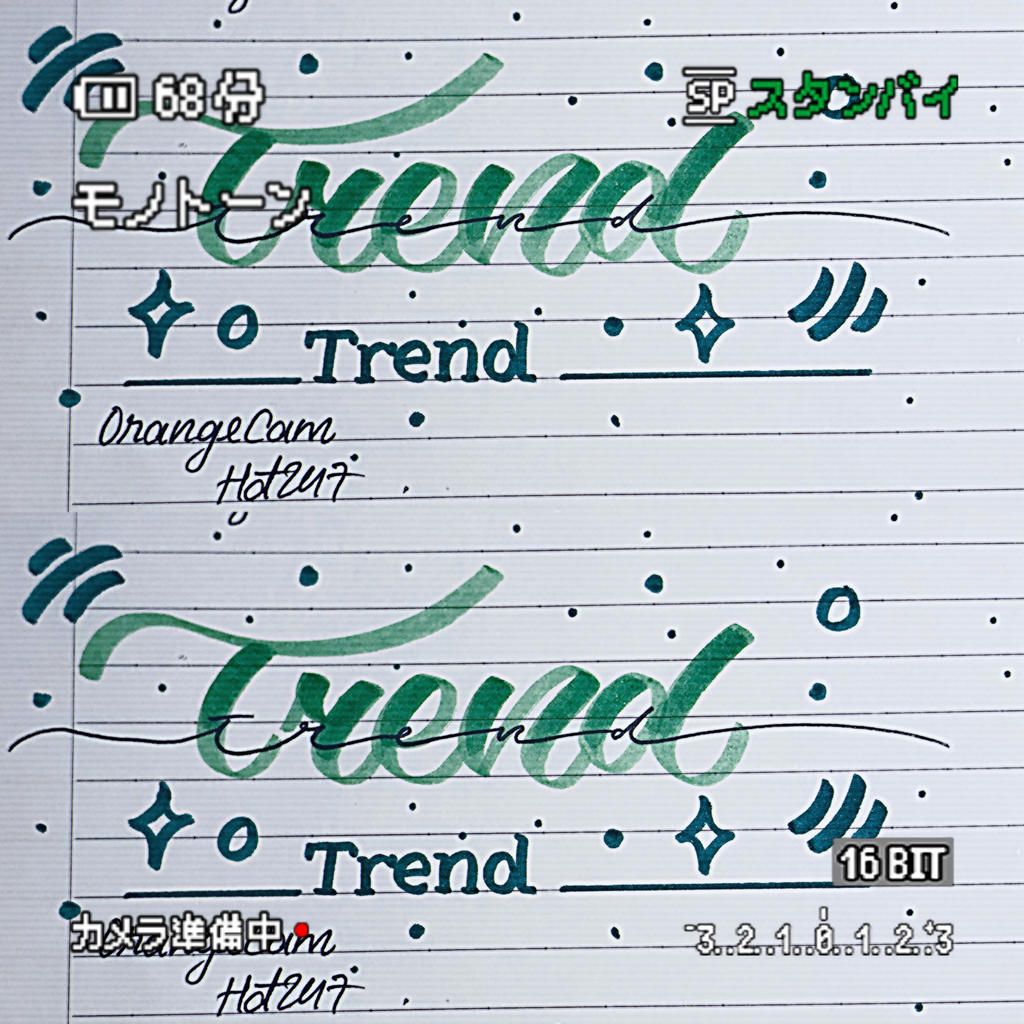 68分
SP スタンバイ
Trend
モノトーン
trend
Trend
OrangeCam
Hot247
Trend
trend
Trend
16 BIT
カメラ準備中
OrangeCam
-3..2..1..0..1..2..+3
Hot247